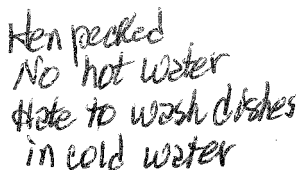 Hen pecked
No hot water
Hate to wash dishes
in cold water